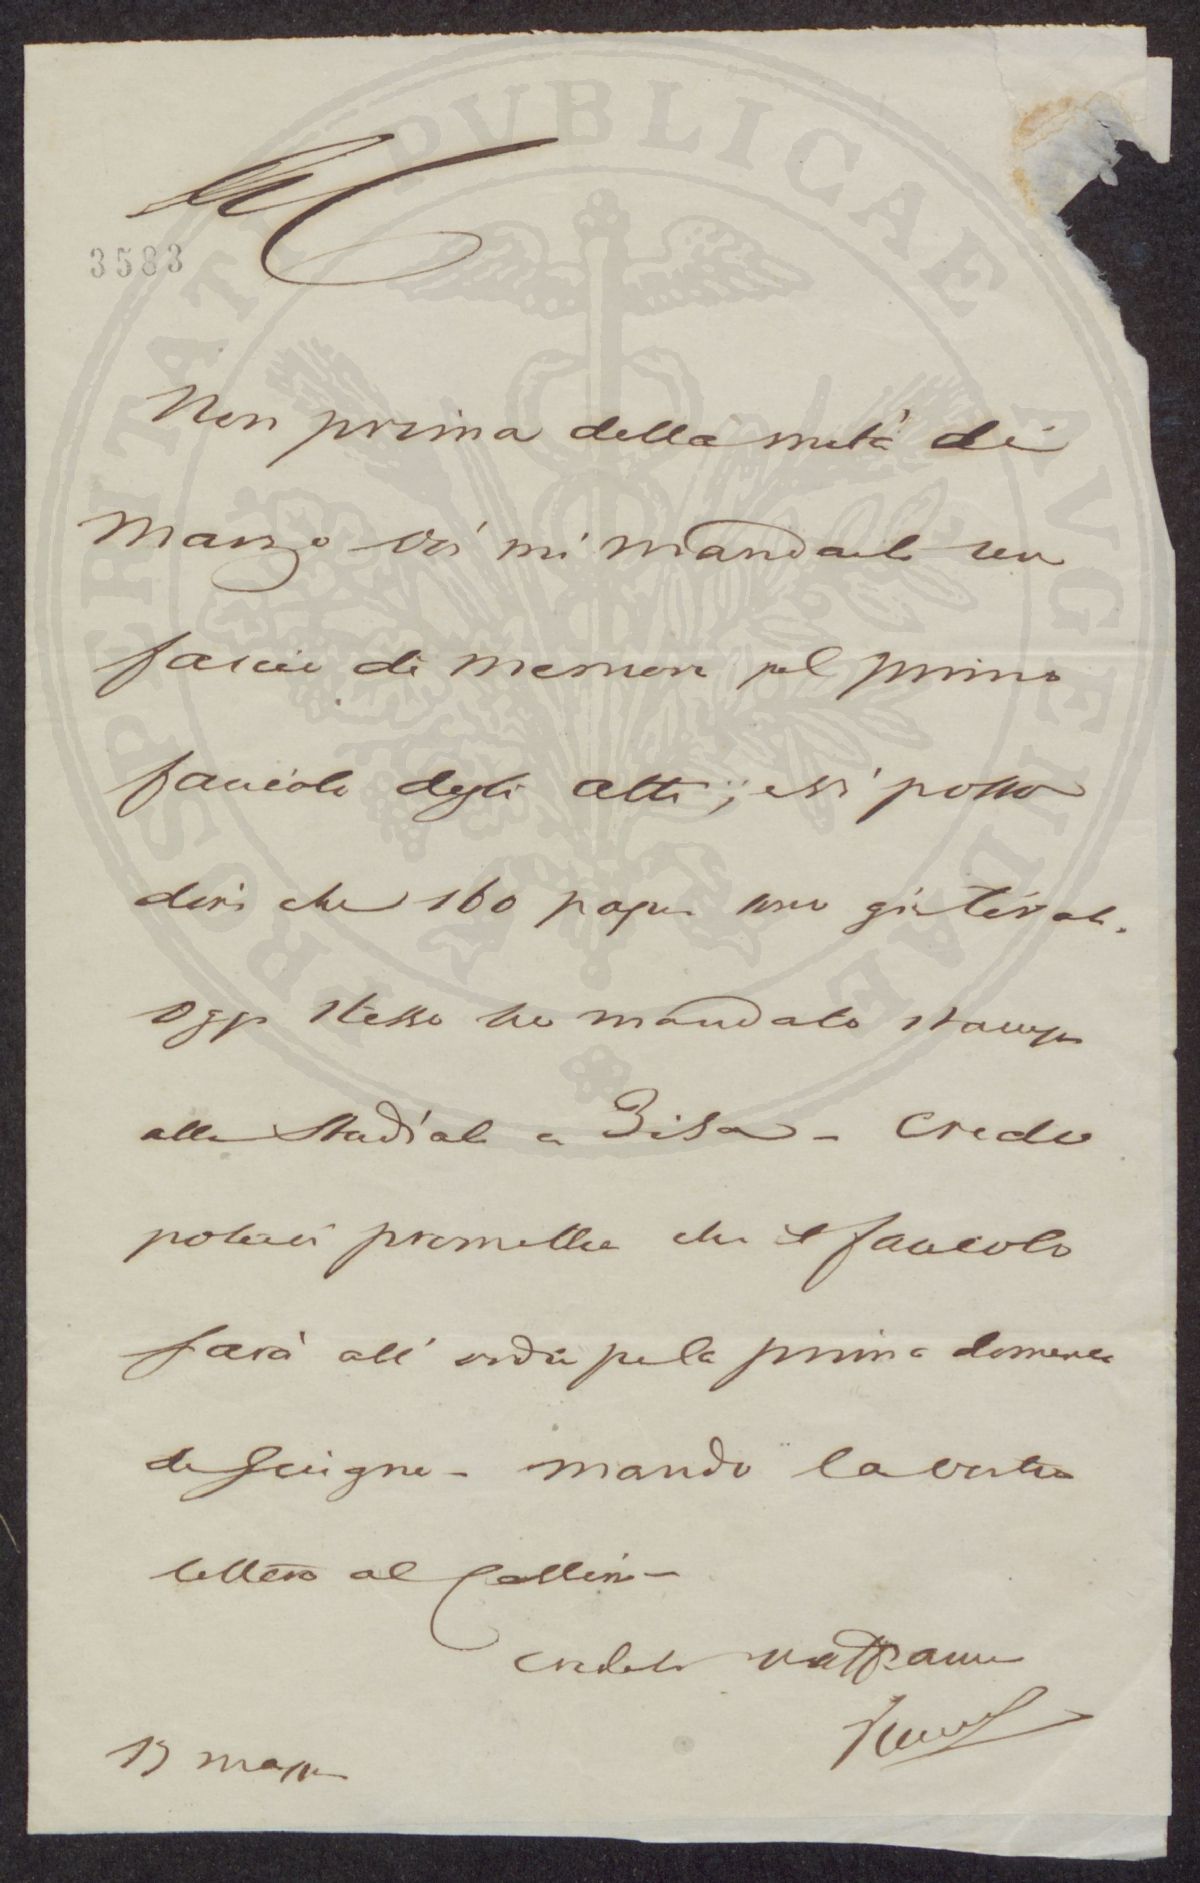 PROSPERITATI PVBLICAE AVGENDAE
3583
Non prima della metà di
Marzo voi mi mandaste un
fascio di memorie pel primo
fascicolo degli atti; e vi posso
dire che 160 pagine sono già tirate.
Oggi stesso ho mandato stampe
alle a Pisa - Credo
potervi promettere che il fascicolo
sarà all' ordine pella prima domenica
di Giugno - mando la vostra
lettera al Cellini -
Credete
maggio